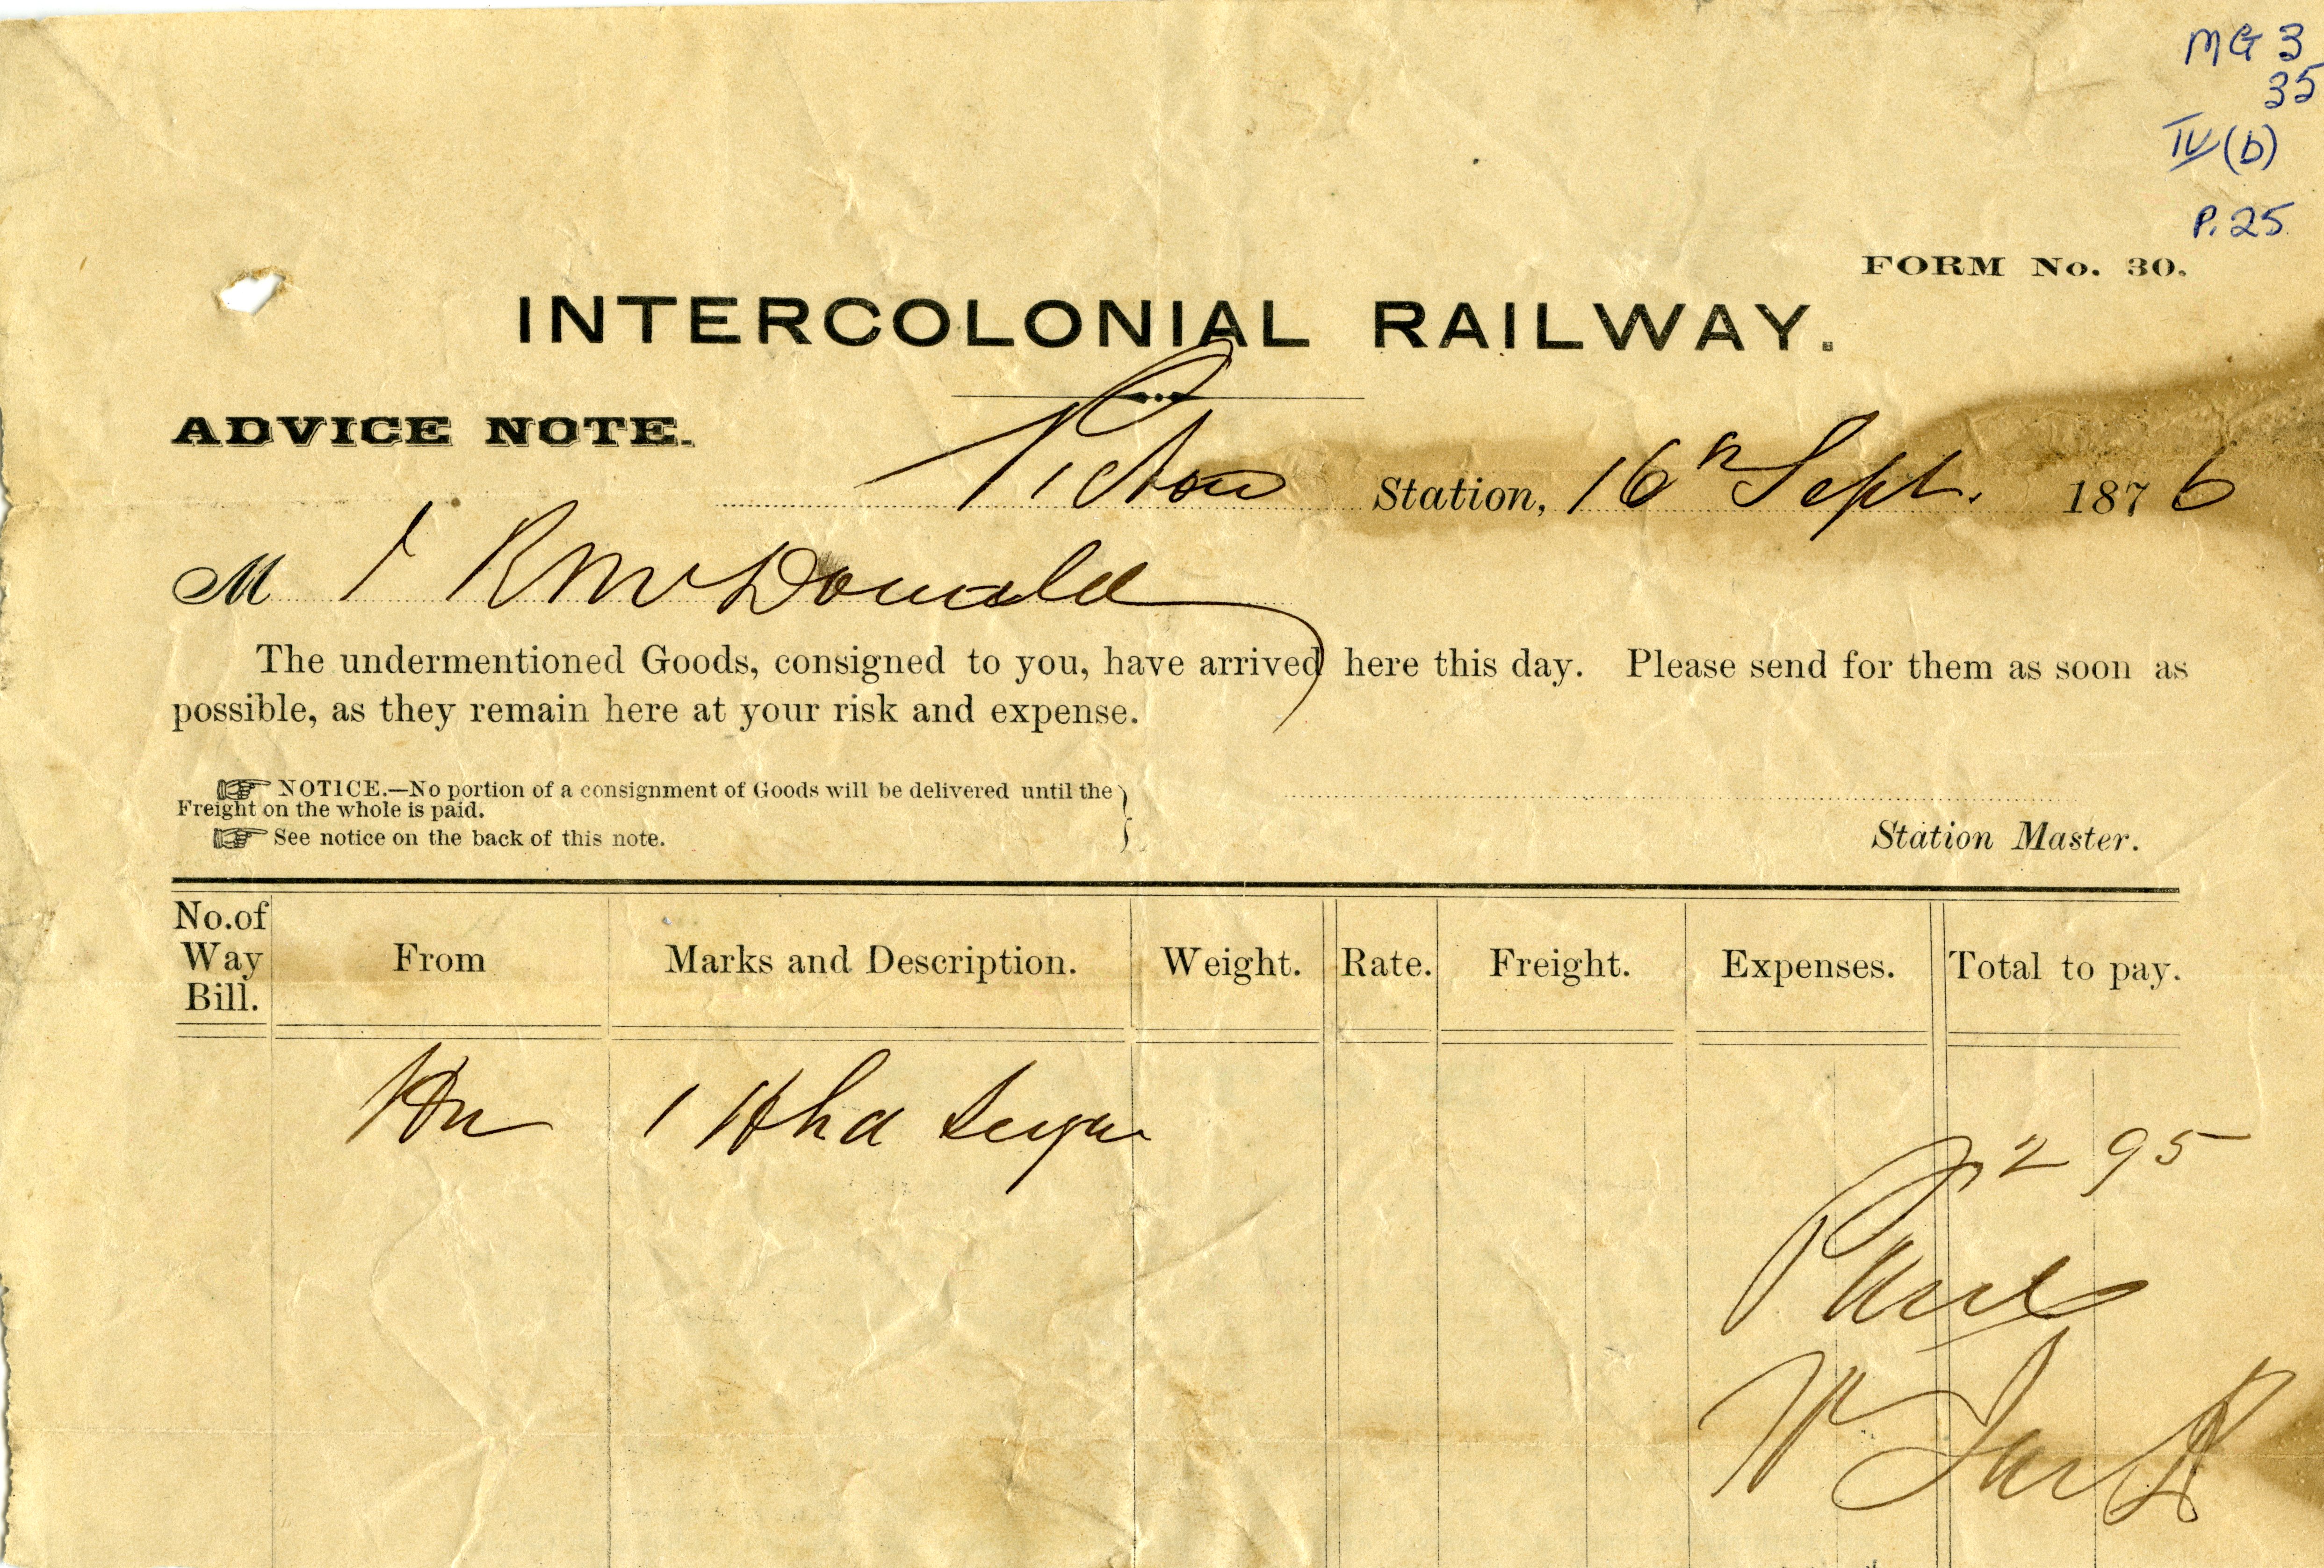 MG 3
35
IV (b)
P. 25
FORM No. 30.
INTERCOLONIAL RAILWAY.
ADVICE NOTE.
Pictou Station, 16th Sept. 1876
M J R McDonald
The undermentioned Goods, consigned to you, have arrived here this day. Please send for them as soon as
possible, as they remain here at your risk and expense.
NOTICE.—No portion of a consignment of Goods will be delivered until the
Freight on the whole is paid.
See notice on the back of this note.
Station Master.
No. of Way Bill. From Marks and Description. Weight. Rate. Freight. Expenses. Total to pay.
1 Hhd Sugar
2 95
Paid